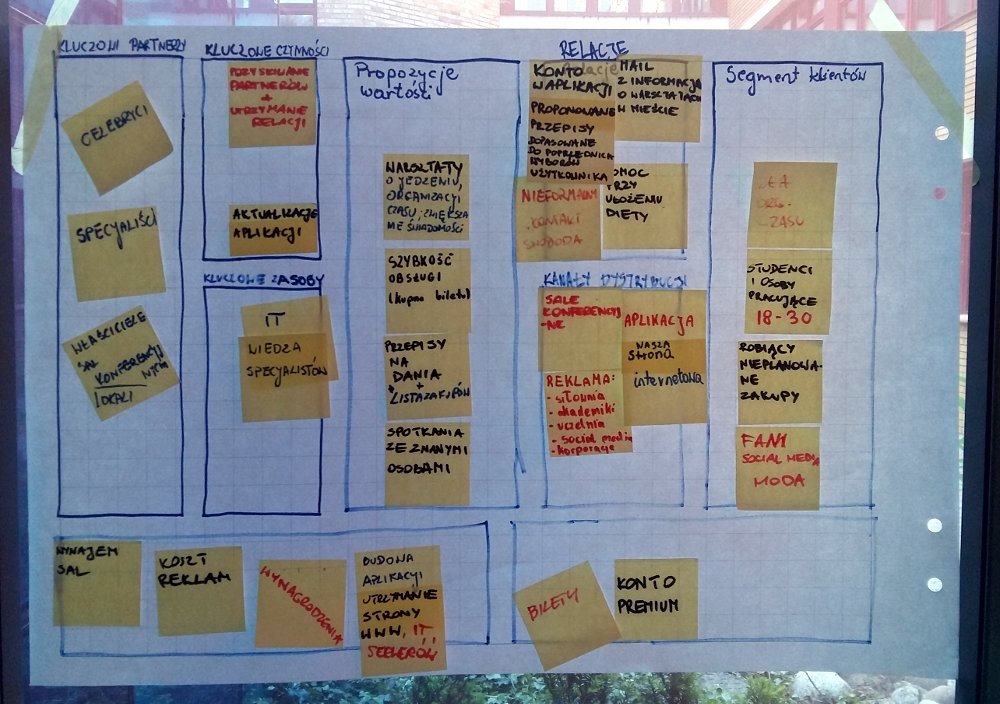 KLUCZOWI PARTNERZY
CELEBRYCI
SPECJALIŚCI
WŁAŚCICIELE
SAL
KONFERENCYJ
NYCH
LOKALI
KLUCZOWE CZYNNOŚCI
POZYSKIWANIE
PARTNERÓW
+
UTRZYMANIE
RELACJI
AKTUALIZACJE
APLIKACJI
KLUCZOWE ZASOBY
IT
WIEDZA
SPECJALISTÓW
Propozycje
wartości
WARSZTATY
O JEDZENIU,
ORGANIZACJI
CZASU, ZWIĘKSZA
NIE ŚWIADOMOŚCI
SZYBKOŚĆ
OBSŁUGI
(kupno biletu)
PRZEPISY
NA
DANIA
+
LISTA ZAKUPÓW
SPOTKANIA
ZE ZNANYMI
OSOBAMI
RELACJE
KONTO
W APLIKACJI
PROPONOWANE
PRZEPISY
DOPASOWANE
DO POPRZEDNICH
WYBORÓW
UŻYTKOWNIKA
MAIL
Z INFORMACJĄ
O WARSZTATACH
W MIEŚCIE
NIEFORMALNY
KONTAKT
SWOBODA
POMOC
PRZY
UŁOŻENIU
DIETY
KANAŁY DYSTRYBUCJI
SALE
KONFERENCYJ
-NE
APLIKACJA
NASZA
strona
internetowa
REKLAMA:
- siłownia
- akademiki
- uczelnia
- social media
- korporacje
Segment klientów
ORG.
CZASU
STUDENCI
I OSOBY
PRACUJĄCE
18-30
ROBIĄCY
NIEPLANOWA-
NE
ZAKUPY
FANI
SOCIAL MEDIA
MODA
WYNAJEM
SAL
KOSZT
REKLAM
WYNAGRODZENIA
BUDOWA
APLIKACJI
UTRZYMANIE
STRONY
WWW, IT
SERWERÓW
BILETY
KONTO
PREMIUM